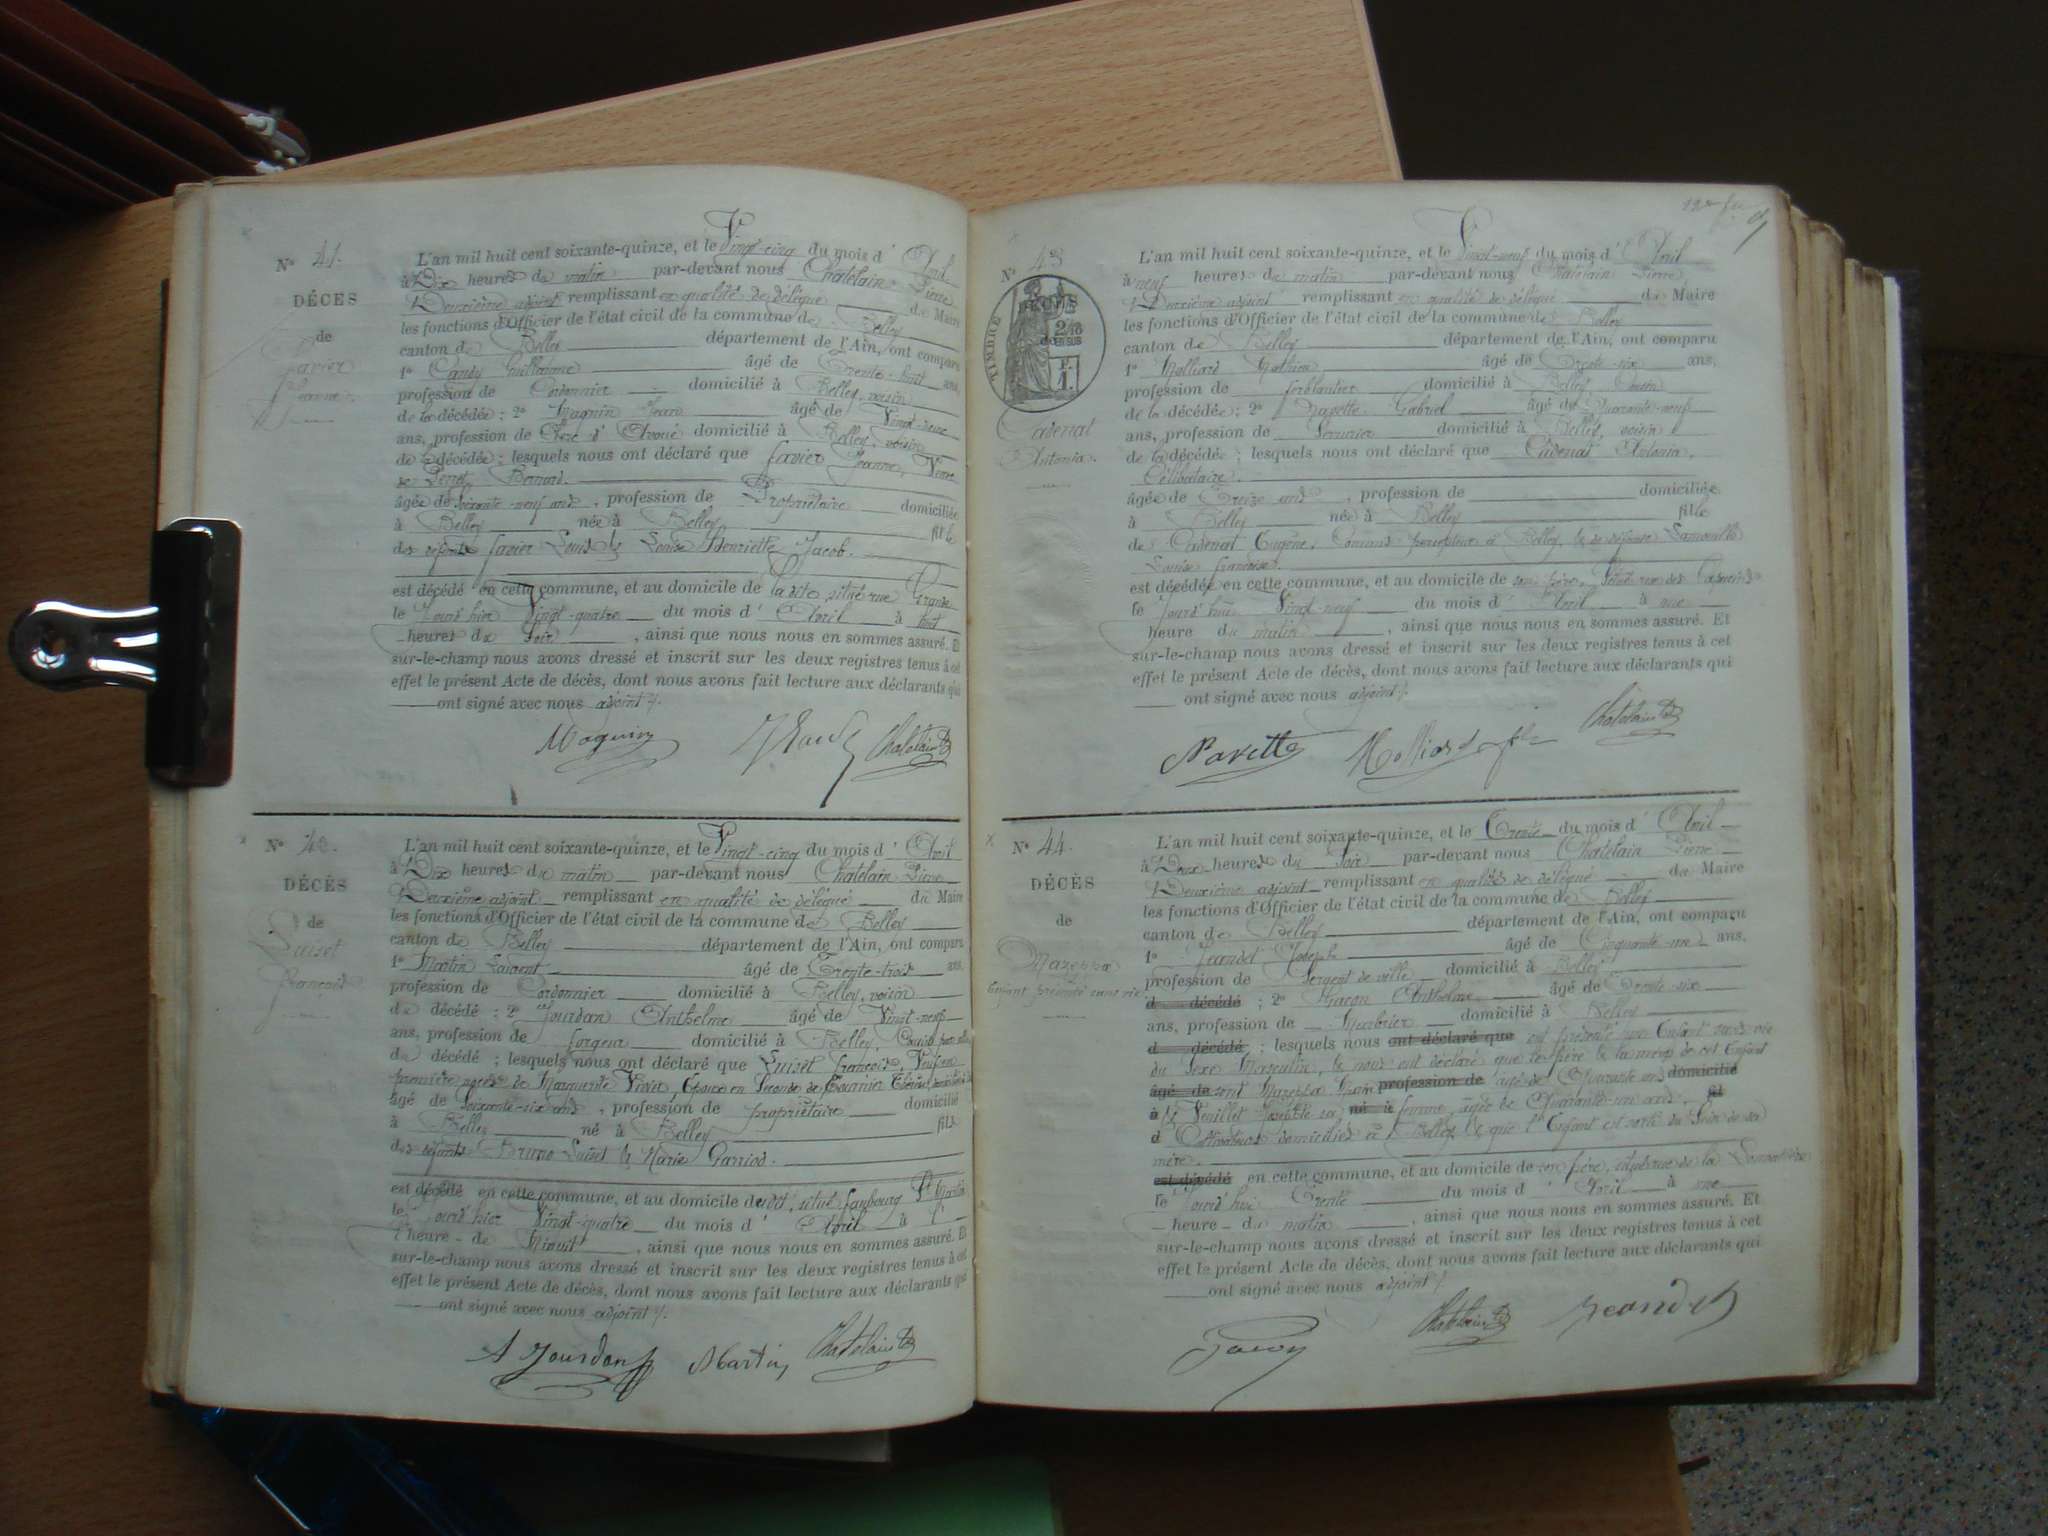 N° 41.
DÉCES
de
Favier
Jeanne.
L'an mil huit cent soixante-quinze, et le Vingt-cinq du mois d' Avril
à Dix heures du matin par-devant nous Chatelain Pierre
Deuxième adjoint remplissant en qualité de délégué du Maire
les fonctions d'Officier de l'état civil de la commune de Belley
canton de Belley département de l'Ain, ont comparu
1° Guillaume âgé de Trente-huit ans,
profession de Cordonnier domicilié à Belley, voisin
de la décédée ; 2° Magnin Jean âgé de Vingt-neuf
ans, profession de Clerc d'Avoué domicilié à Belley, voisin
de la décédée ; lesquels nous ont déclaré que Favier Jeanne, Veuve
de Bernard.
âgée de soixante-neuf ans, profession de Propriétaire domiciliée
à Belley née à Belley fille
des défunts Favier Louis & Louise Henriette Jacob.
est décédé en cette commune, et au domicile de la dite situé rue Grande
le jourd'hier Vingt-quatre du mois d' Avril à huit
heures du soir, ainsi que nous nous en sommes assuré. Et
sur-le-champ nous avons dressé et inscrit sur les deux registres tenus à cet
effet le présent Acte de décès, dont nous avons fait lecture aux déclarants qui
ont signé avec nous adjoint ./.
Magnin Chatelain
N° 42.
DÉCÈS
de
Luiset
François
L'an mil huit cent soixante-quinze, et le Vingt-cinq du mois d' Avril
à Dix heures du matin par-devant nous Chatelain Pierre
Deuxième adjoint remplissant en qualité de délégué du Maire
les fonctions d'Officier de l'état civil de la commune de Belley
canton de Belley département de l'Ain, ont comparu
1° Martin Laurent âgé de Trente-trois ans,
profession de Cordonnier domicilié à Belley, voisin
du décédé ; 2° Jourdan Anthelme âgé de Vingt-neuf
ans, profession de forgeur domicilié à Belley, Cousin
du décédé ; lesquels nous ont déclaré que Luiset François, Veuf en
première noces de Marguerite Vivier, Epoux en Seconde de Tournier
âgé de soixante-six ans, profession de propriétaire domicilié
à Belley né à Belley fils
des défunts Bruno Luiset & Marie Parriod.
est décédé en cette commune, et au domicile dudit, situé faubourg St Martin
le jourd'hier Vingt-quatre du mois d' Avril à l'
heure de Minuit, ainsi que nous nous en sommes assuré. Et
sur-le-champ nous avons dressé et inscrit sur les deux registres tenus à cet
effet le présent Acte de décès, dont nous avons fait lecture aux déclarants qui
ont signé avec nous adjoint ./.
A Jourdan Martin Chatelain
N° 43
TIMBRE
2/10
EN SUS
F.
1.
Cadenat
Antonia.
L'an mil huit cent soixante-quinze, et le Vingt-neuf du mois d' Avril
à neuf heures du matin par-devant nous Chatelain Pierre
Deuxième adjoint remplissant en qualité de délégué du Maire
les fonctions d'Officier de l'état civil de la commune de Belley
canton de Belley département de l'Ain, ont comparu
1° Molliard Mathieu âgé de Trente-six ans,
profession de ferblantier domicilié à Belley voisin
de la décédée ; 2° Navette Gabriel âgé de Quarante-neuf
ans, profession de Serrurier domicilié à Belley, voisin
de la décédée ; lesquels nous ont déclaré que Cadenat Antonia,
Célibataire.
âgée de Treize ans, profession de domiciliée
à Belley née à Belley fille
de Cadenat Eugène, Commis percepteur à Belley, & de défunte
Louise Françoise.
est décédée en cette commune, et au domicile de son père, situé rue des
le jourd'hui Vingt-neuf du mois d' Avril à une
heure du matin, ainsi que nous nous en sommes assuré. Et
sur-le-champ nous avons dressé et inscrit sur les deux registres tenus à cet
effet le présent Acte de décès, dont nous avons fait lecture aux déclarants qui
ont signé avec nous adjoint ./.
Navette Molliard Chatelain
N° 44.
DÉCÈS
de
Mazeppa
Enfant présenté sans vie
L'an mil huit cent soixante-quinze, et le Trente du mois d' Avril
à Deux heures du soir par-devant nous Chatelain Pierre
Deuxième adjoint remplissant en qualité de délégué du Maire
les fonctions d'Officier de l'état civil de la commune de Belley
canton de Belley département de l'Ain, ont comparu
1° Jeandet Joseph âgé de Cinquante-un ans,
profession de Sergent de ville domicilié à Belley
d décédé ; 2° Anthelme âgé de Trente-six
ans, profession de domicilié à Belley
d décédé ; lesquels nous ont déclaré que ont présenté un Enfant sans vie
du sexe Masculin, & nous ont déclaré que le père & la mère de cet Enfant
âgé de sont Mazeppa profession de âgé de Quarante ans domicilié
à & né à femme, âgée de Quarante-un ans, fil
d domiciliés à Belley, & que l'Enfant est sorti du Sein de sa
mère.
est décédé en cette commune, et au domicile de son père, rue de la
le jourd'hui Trente du mois d' Avril à une
heure du matin, ainsi que nous nous en sommes assuré. Et
sur-le-champ nous avons dressé et inscrit sur les deux registres tenus à cet
effet le présent Acte de décès, dont nous avons fait lecture aux déclarants qui
ont signé avec nous adjoint ./.
Chatelain Jeandet